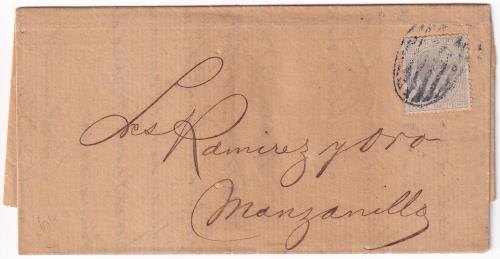 Sres Ramirez y Oro
Manzanillo